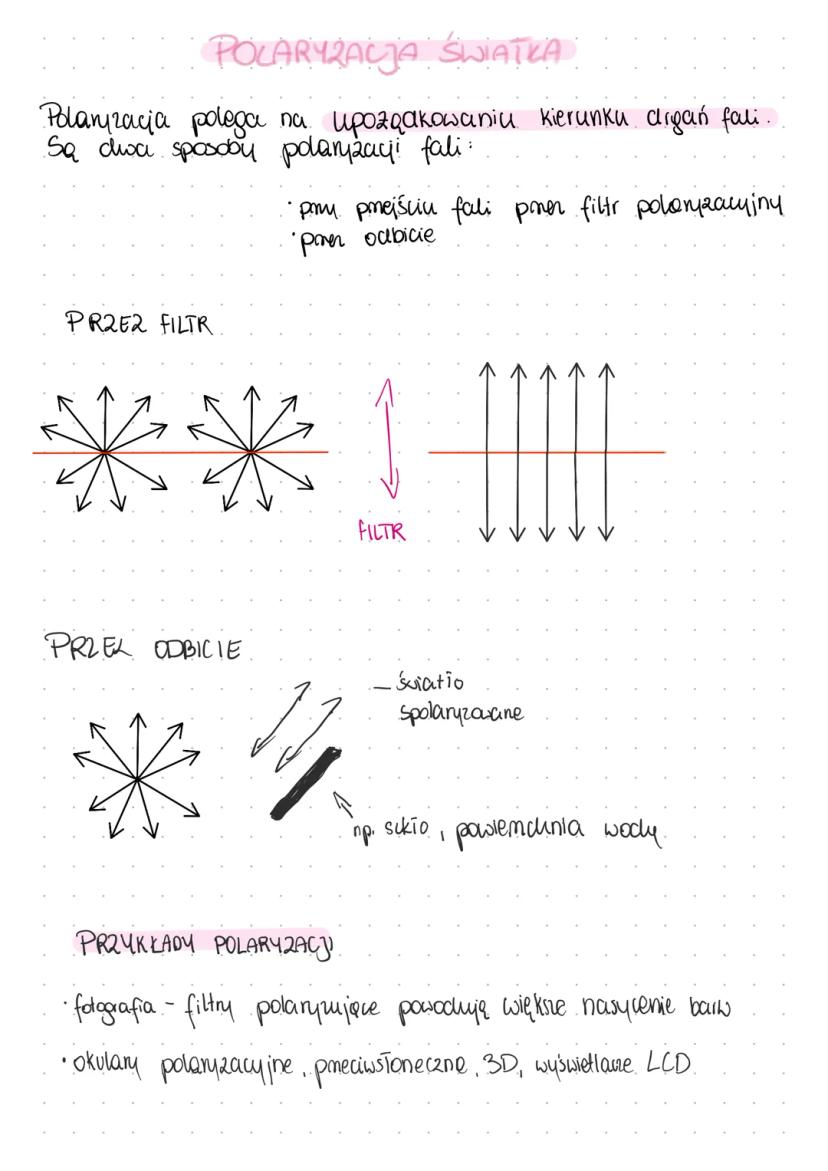 POLARYZACJA ŚWIATŁA
Polaryzacja polega na upożądkowaniu kierunku drgań fali.
Są dwa sposoby polaryzacji fali:
· przy przejściu fali przez filtr polaryzacyjny
· przez odbicie
PRZEZ FILTR
FILTR
PRZEZ ODBICIE
– światło
spolaryzowane
np. szkło, powierzchnia wody
PRZYKŁADY POLARYZACJI
· fotografia - filtry polaryzujące powodują większe nasycenie barw
· okulary polaryzacyjne, przeciwsłoneczne, 3D, wyświetlacze LCD